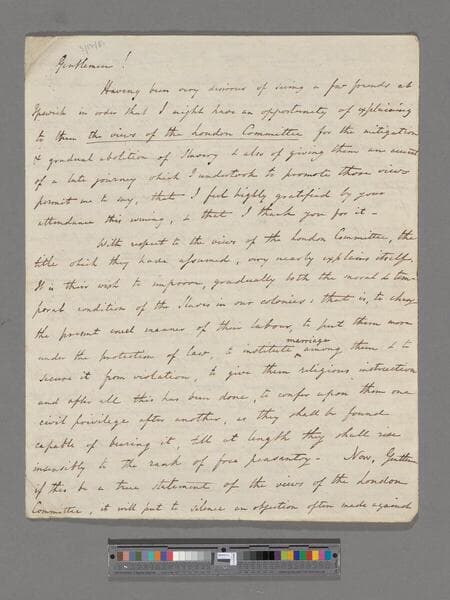 Gentlemen!
Having been very desirous of seeing a few friends at
Ipswich in order that I might have an opportunity of explaining
to them the views of the London Committee for the mitigation
& gradual abolition of Slavery & also of giving them an account
of a late journey which I undertook to promote those views
permit me to say, that I feel highly gratified by your
attendance this evening, & that I thank you for it –
With respect to the views of the London Committee, the
title which they have assumed, very nearly explains itself,
It is their wish to improve, gradually both the moral & tem-
poral condition of the Slaves in our colonies; that is, to change
the present cruel manner of their labour, to put them more
under the protection of law, to institute marriage among them & to
secure it from violation, to give them religious instruction
and after all this has been done, to confer upon them one
civil privilege after another, as they shall be found
capable of bearing it, till at length they shall rise
insensibly to the rank of free peasantry – Now, Gentlemen
if this be a true statement of the views of the London
Committee, it will put to silence an objection often made against